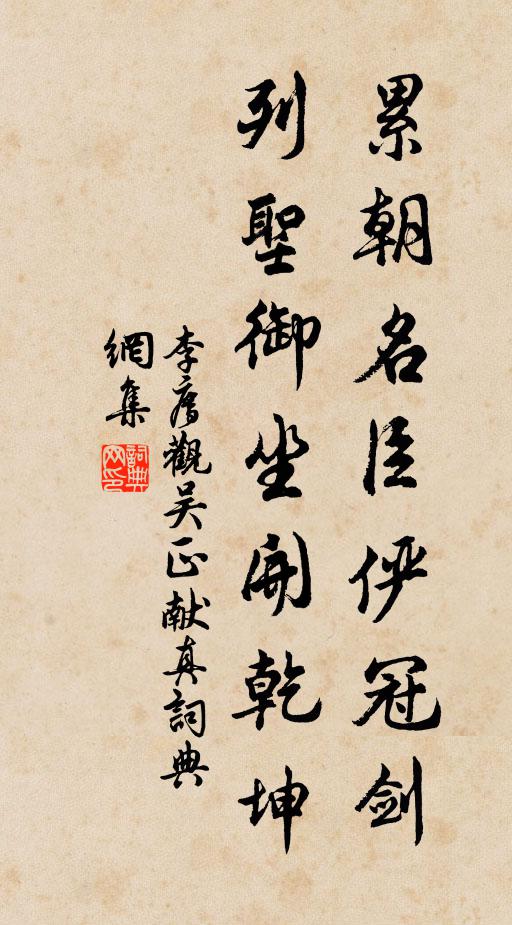 累朝名臣俨冠剑
列聖御坐開乾坤
李廌觀吴正献真詞典
網集
詞典網印